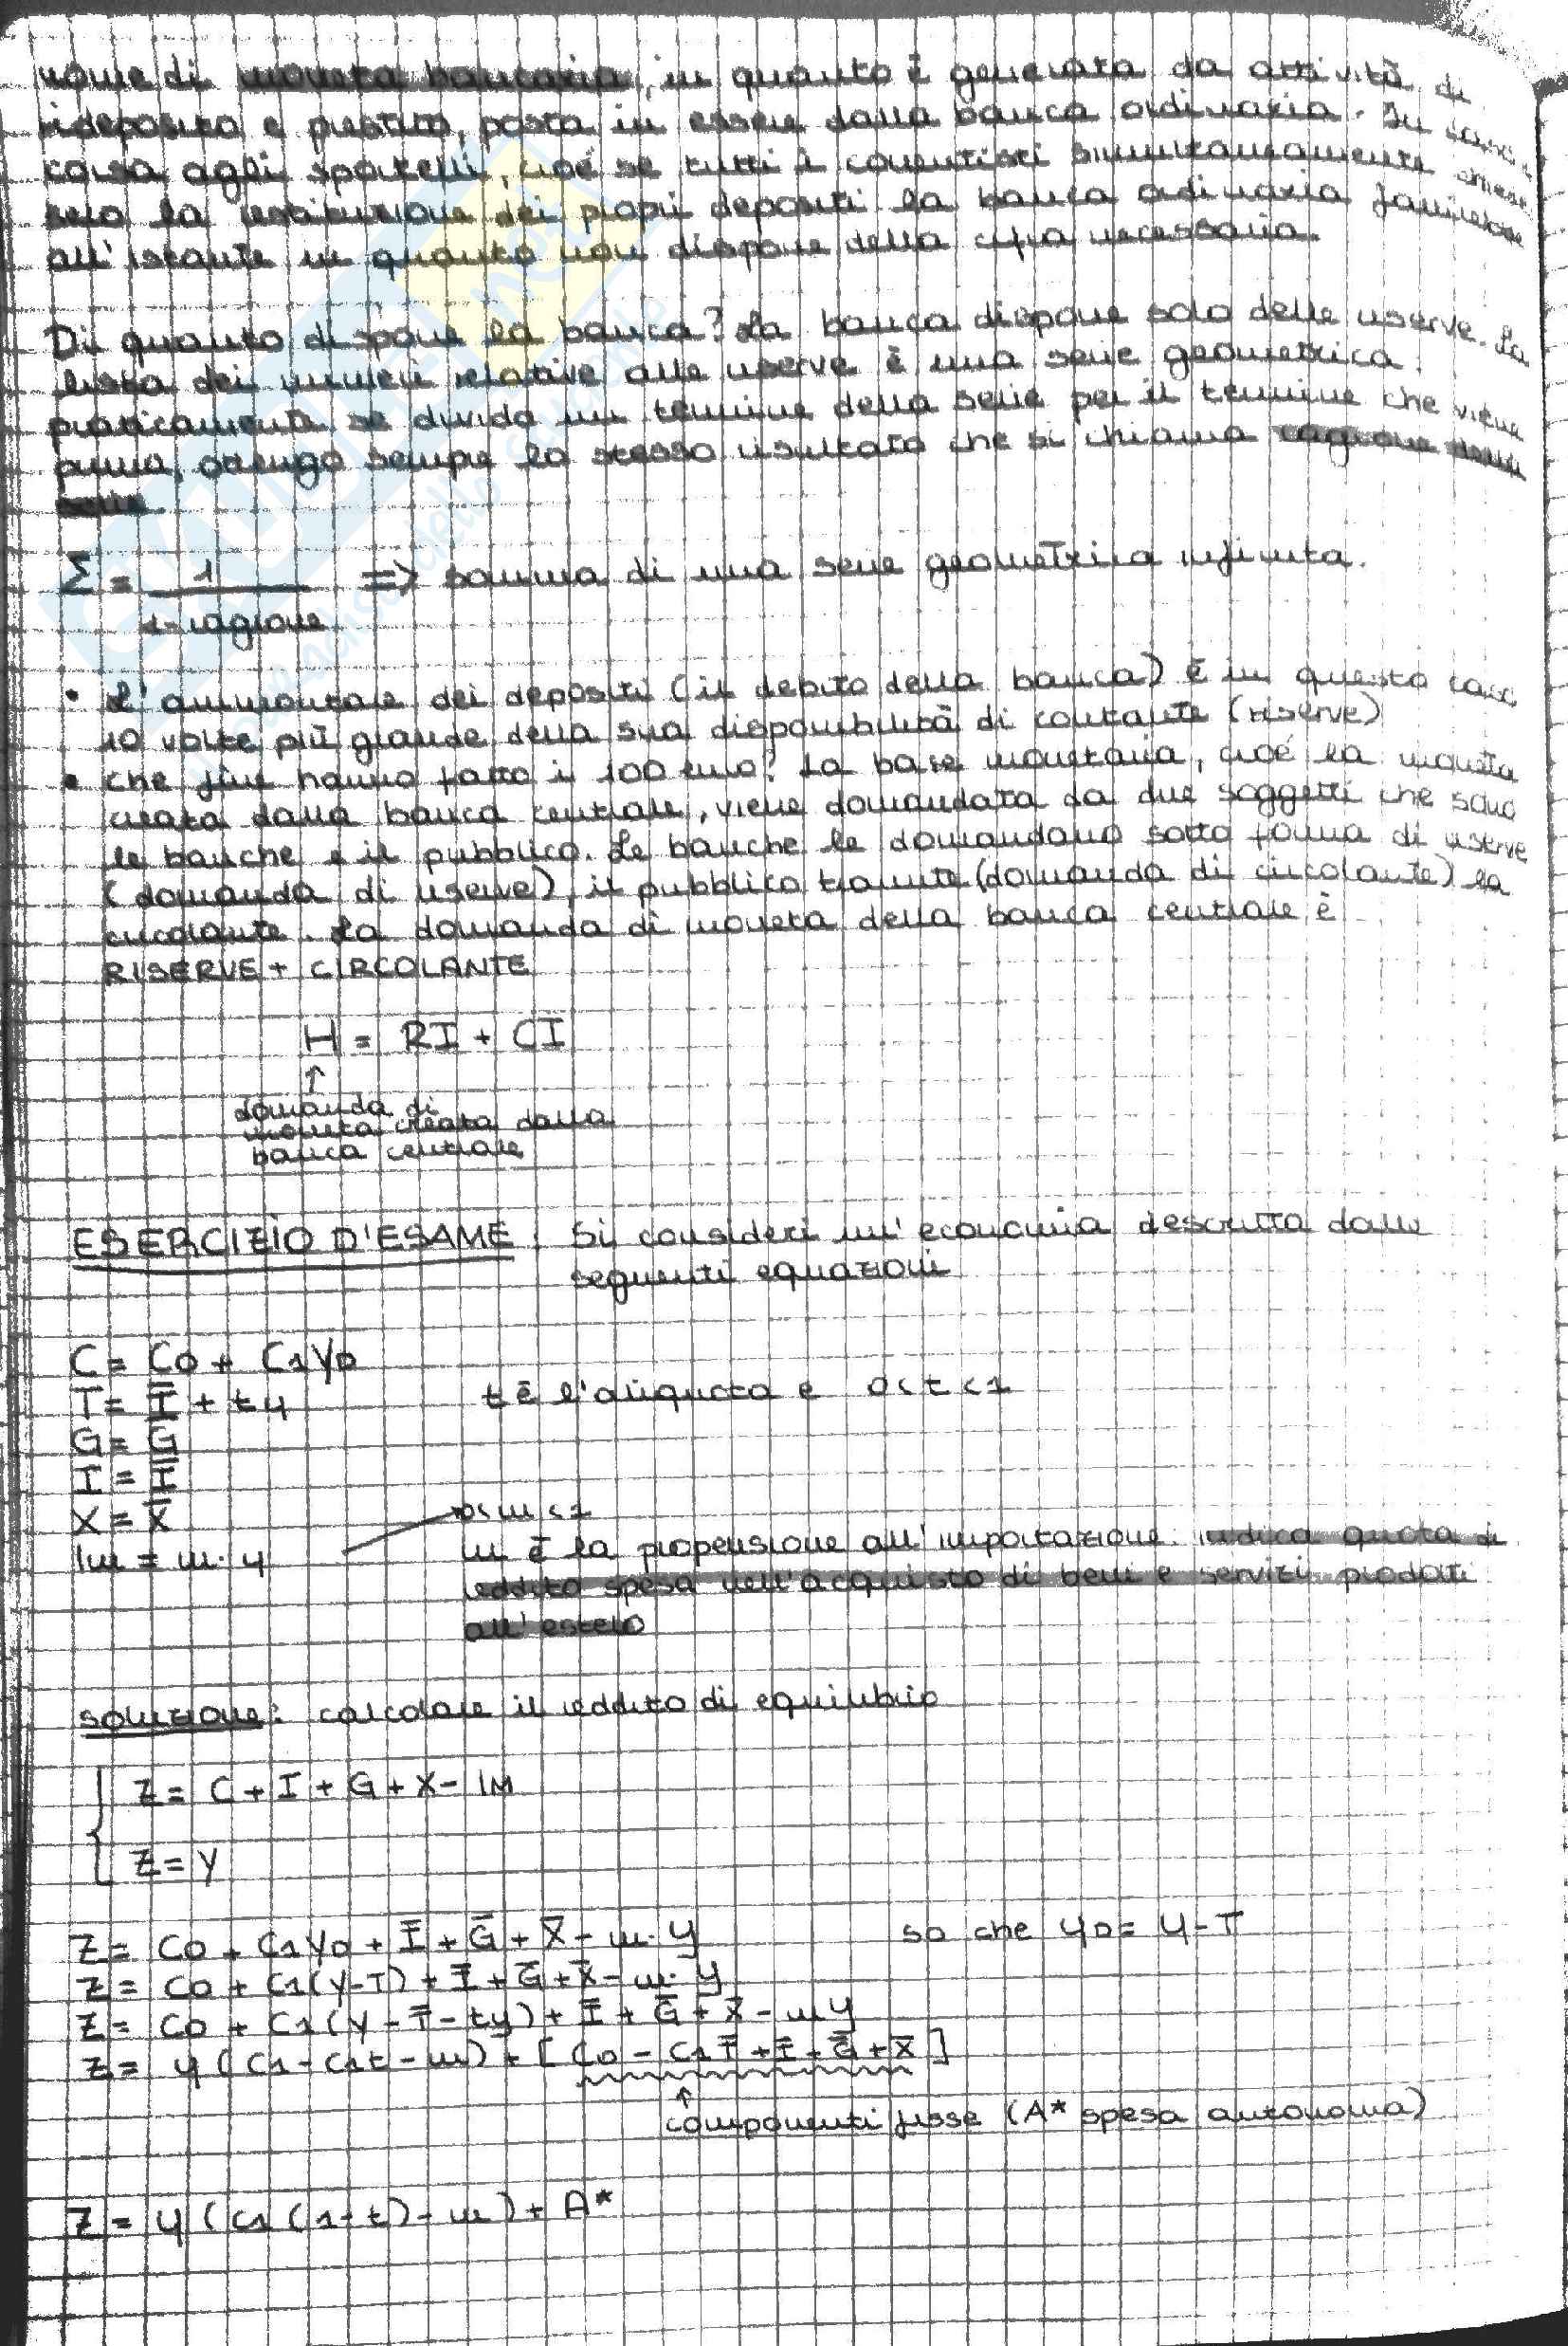 nome di moneta bancaria, in quanto è generata da attività di
deposito e prestito, posta in essere dalla banca ordinaria. In caso di
corsa agli sportelli, cioè se tutti i correntisti simultaneamente
sero la restituzione dei propri depositi la banca ordinaria
all'istante in quanto non dispone della cifra necessaria.
Di quanto dispone la banca? La banca dispone solo delle riserve. La
lista dei numeri relative alle riserve è una serie geometrica.
praticamente se divido un termine della serie per il termine che viene
prima, ottengo sempre lo stesso risultato che si chiama ragione della
serie.
Σ = 1 => somma di una serie geometrica infinita.
1-ragione
• L'ammontare dei depositi (il debito della banca) è in questo caso
10 volte più grande della sua disponibilità di contante (riserve)
• che fine hanno fatto i 100 euro? La base monetaria, cioè la moneta
creata dalla banca centrale, viene domandata da due soggetti che sono
le banche e il pubblico. Le banche la domandano sotto forma di riserve
(domanda di riserve), il pubblico tramite (domanda di circolante) la
circolante. La domanda di moneta della banca centrale è
RISERVE + CIRCOLANTE
H = RI + CI
↑
domanda di
moneta creata dalla
banca centrale
ESERCIZIO D'ESAME: Si consideri un'economia descritta dalle
seguenti equazioni
C = C0 + C1YD
T = T̅ + ty t è l'aliquota e 0<t<1
G = G̅
I = I̅
X = X̅
IM = m·y 0<m<1
m è la propensione all'importazione: indica quota di
reddito spesa nell'acquisto di beni e servizi prodotti
all'estero
soluzione: calcolare il reddito di equilibrio
Z = C + I + G + X - IM
Z = Y
Z = C0 + C1YD + I̅ + G̅ + X̅ - m·y so che yD = y-T
Z = C0 + C1(y-T) + I̅ + G̅ + X̅ - m·y
Z = C0 + C1(y - T̅ - ty) + I̅ + G̅ + X̅ - my
Z = y(C1 - C1t - m) + [C0 - C1T̅ + I̅ + G̅ + X̅]
↑
componenti fisse (A* spesa autonoma)
Z = y(C1(1-t) - m) + A*